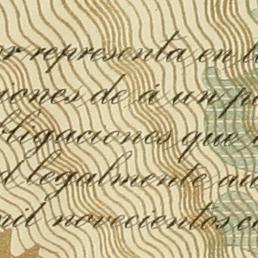 or representa en l
iones de á un p
bligaciones que
d legalmente au
mil novecientos c